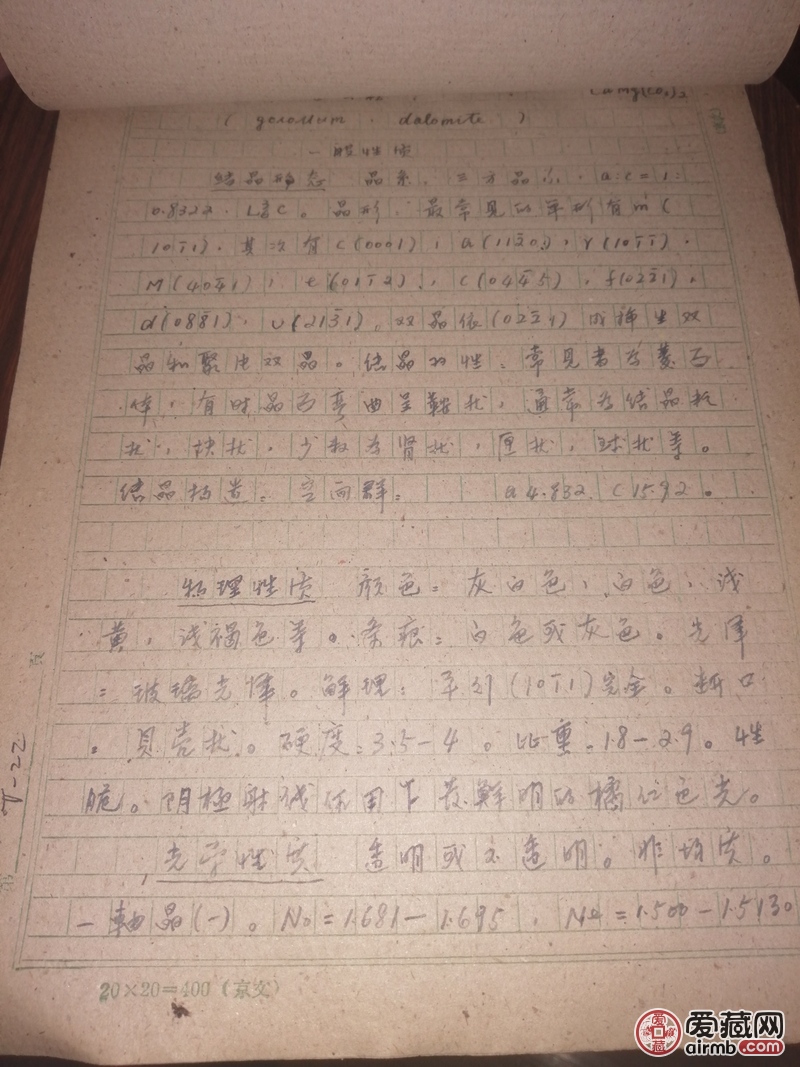 CaMg(CO₃)₂
( gorossum . dolomite )
一般性质
结晶形态 晶系，三方晶系，a:c=1:
0.8322. L³3C。晶形，最常见的单形有m(
10T1)，其次有c(0001)，a(1120)，r(10TT)，
M(4041)，e(01T2)，c(0445)，f(0221)，
d(0881)，v(2131)。双晶依(0221)成禅生双
晶和聚片双晶。结晶习性：常见者为菱面
体，有时晶面弯曲呈鞍状，通常为结晶粒
状，块状，少数为肾状，巨状，球状等。
结晶构造：空间群： a4.832 C15.92。
物理性质 颜色：灰白色，白色，浅
黄，浅褐色等。条痕：白色或灰色。光泽
：玻璃光泽。解理：平行(10T1)完全。断口
。贝壳状。硬度：3.5-4。比重：1.8-2.9。性
脆。阴极射线作用下发鲜明的橘红色光。
光学性质 透明或不透明。非均质。
一轴晶(-)。No=1.681-1.695，Ne=1.500-1.5130
页
V-22
第
20×20=400(京文)
爱藏网
airmb.com